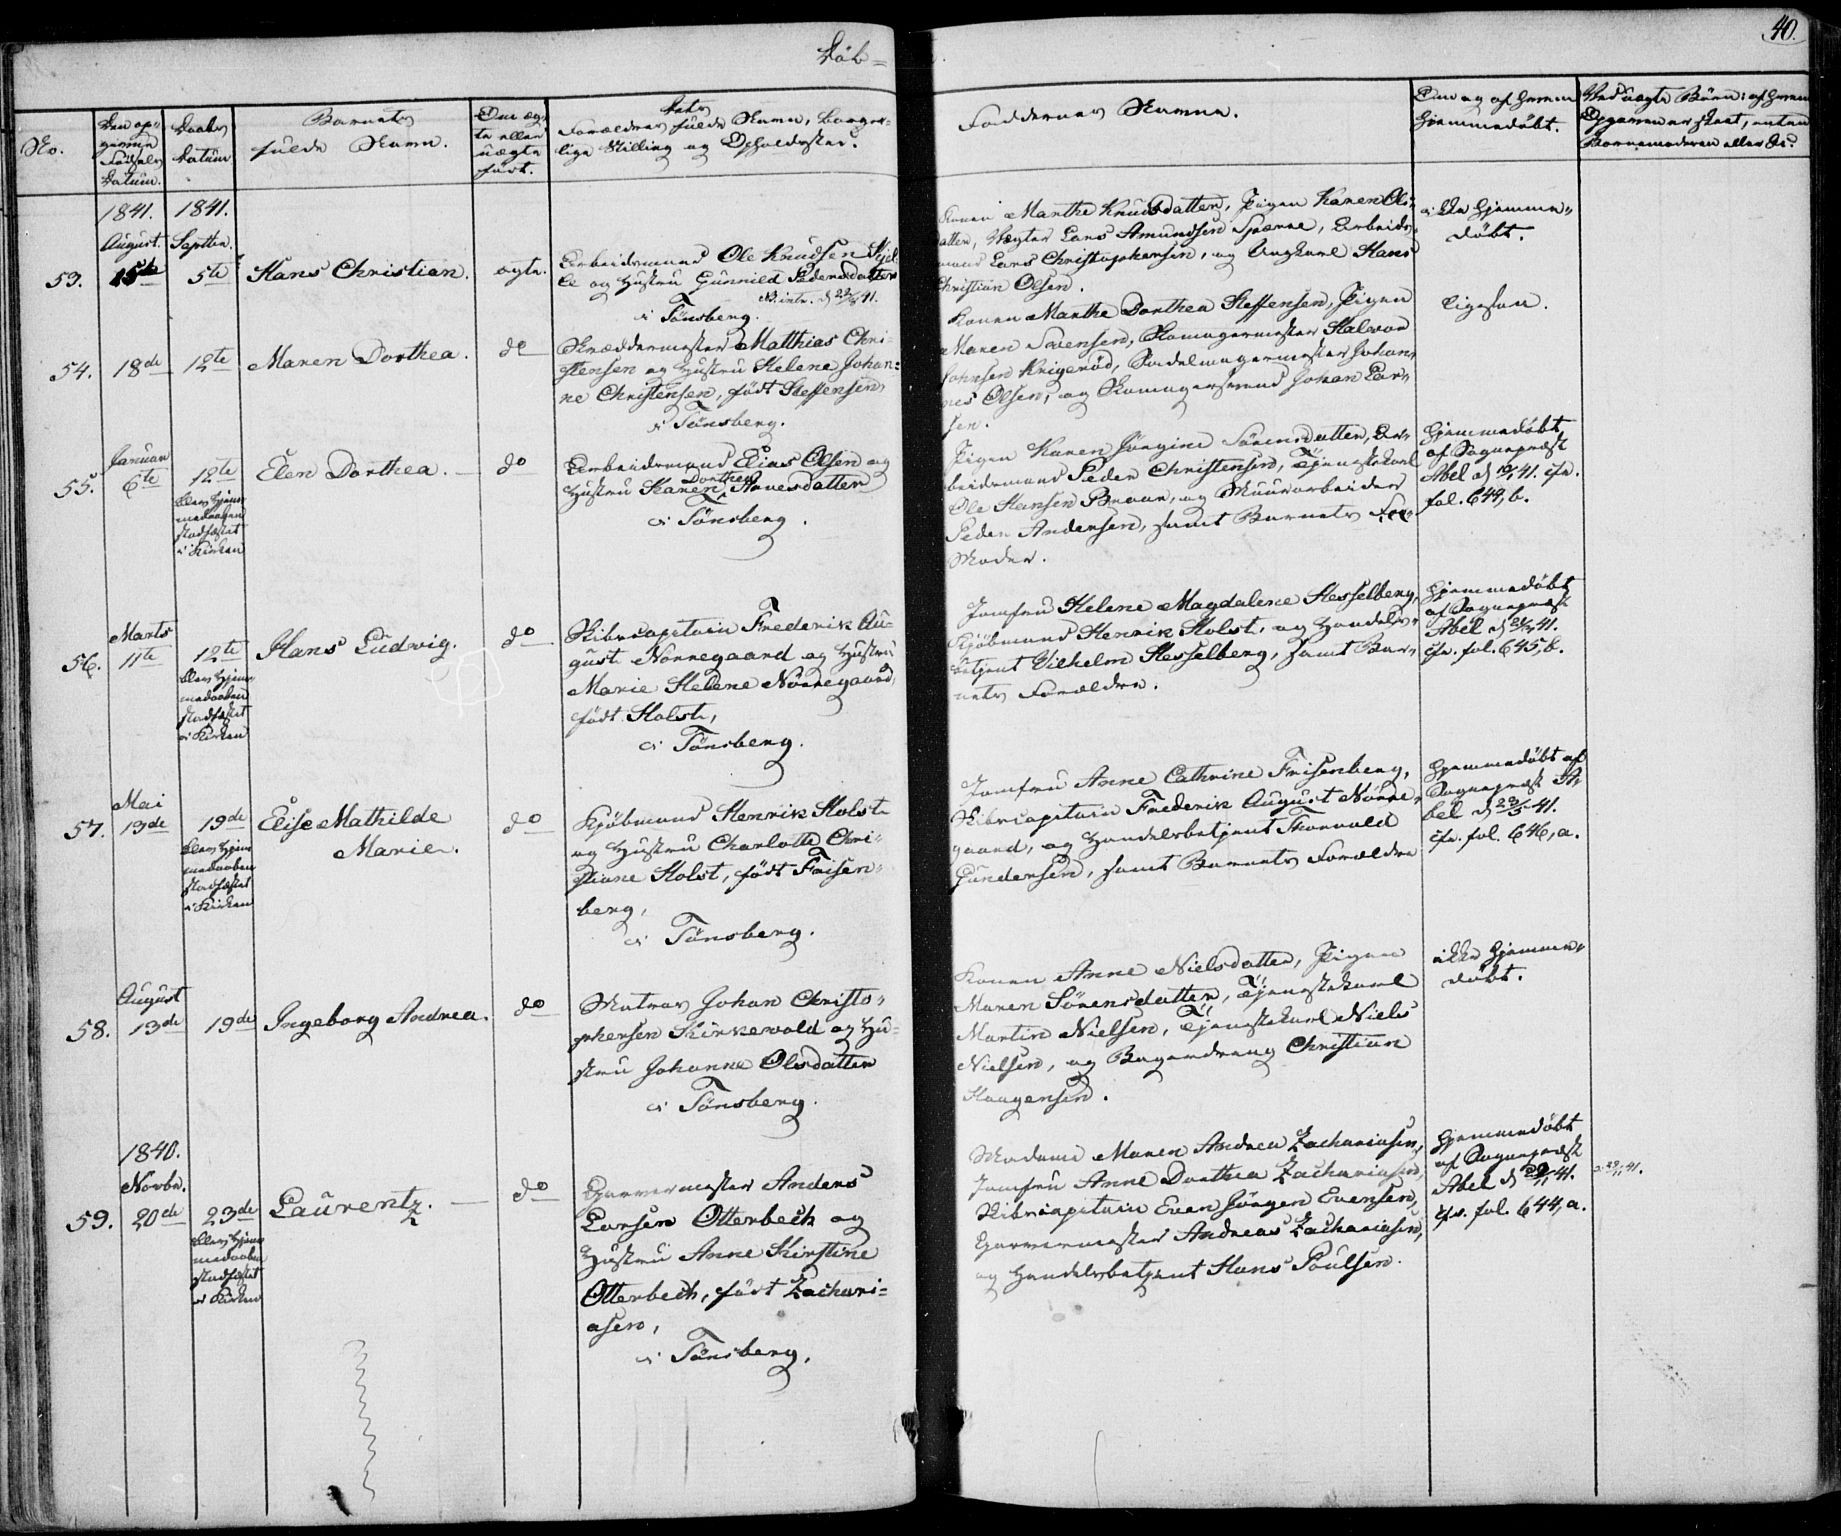 Döb=
40.
No.
Den op-
givne
Födsels
Datum.
Daabs
Datum
Barnets
fulde Navn.
Om æg-
te eller
uægte
født.
Dets
Forældres fulde Navne, borger-
lige Stilling og Opholdssted.
Faddernes Navne.
Om og af hvem
Hjemmedøbt.
Ved uægte Børn: af hvem
Opgaven er skeet, enten
Barnemoderen eller
1841.
August.
1841.
Septbr.
53.
15de
5te
Hans Christian.
ægte.
Arbeidsmand Ole Knudsen
og Hustru Gunnild Pedersdatter
i Tönsberg.
Konen Marthe Knudsdatter, Pigen Karen Ols-
datter, Vægter Lars Amundsen Spærre, Arbeids-
mand Lars Christophersen, og Ungkarl Hans
Christian Olsen.
ikke hjemme-
døbt.
54.
18de
12te
Maren Dorthea.
do
Skræddermester Matthias Chri-
stensen og Hustru Helene Johan-
ne Christensen, født Steffensen,
i Tönsberg.
Konen Marthe Dorthea Steffensen, Pigen
Maren Svensen, Skomagermester Halvor
Johnsen Krigeröd, Sadelmagermester Johan-
nes Olsen, og Skomagersvend Johan Lar-
sen.
Ligesaa.
Januar
55.
6te
12te
blev Hjem-
medaaben
stadfæstet
i Kirken
Elen Dorthea.
do
Arbeidsmand Elias Olsen og
Hustru Karen Dorthea Hansdatter
i Tönsberg.
Pigen Karen Jörgine Sörensdatter, Ar-
beidsmand Peder Christensen, Tjenestekarl
Ole Hansen Braar, og Muurarbeider
Peder Andersen, samt Barnets
Moder.
Hjemmedøbt
af Sognepræst
Abel d 10/1 41. cfr.
fol. 644, b.
Marts
56.
11te
12te
blev Hjem-
medaaben
stadfæstet
i Kirken
Hans Ludvig.
do
Skibscapitain Frederik Au-
gust Nörregaard og Hustru
Marie Helene Nörregaard,
født Holst,
i Tönsberg.
Jomfru Helene Magdalene Hesselberg,
Kjöbmand Henrik Holst, og Handels-
betjent Vilhelm Hesselberg, samt Bar-
nets Forældre.
Hjemmedøbt
af Sognepræst
Abel d 41.
cfr. fol. 645, b.
Mai
57.
13de
19de
blev Hjem-
medaaben
stadfæstet
i Kirken
Elise Mathilde
Marie.
do
Kjöbmand Henrik Holst
og Hustru Charlotte Chri-
stiane Holst, født Frisen-
berg,
i Tönsberg.
Jomfru Anne Cathrine Frisenberg,
Skibscapitain Frederik August Nörre-
gaard, og Handelsbetjent Thorvald
Gundersen, samt Barnets Forældre
Hjemmedøbt af
Sognepræst A-
bel d 23/5 41.
cfr. fol. 646, a.
August
58.
13de
19de
Ingeborg Andrea.
do
Matros Johan Christo-
phersen Kirkevold og Hu-
stru Johanne Olsdatter
i Tönsberg.
Konen Anne Nielsdatter, Pigen
Maren Sörensdatter, Tjenestekarl
Martin Nielsen, Tjenestekarl Niels
Nielsen, og Bagerdreng Christian
Haagensen.
ikke hjemme-
døbt.
1840.
Novbr.
59.
20de
23de
blev Hjem-
medaaben
stadfæstet
i Kirken
Laurentz.
do
Garvermester Anders
Larsen Otterbech og
Hustru Anne Kirstine
Otterbech, født Zachari-
asen,
i Tönsberg.
Madame Maren Andrea Zachariasen,
Jomfru Anne Dorthea Zachariasen,
Skibscapitain Even Jörgen Evensen,
Garvermester Andreas Zachariasen,
og Handelsbetjent Hans Poulsen.
Hjemmedøbt
af Sognepræst
Abel d 41.
cfr. fol. 644, a.